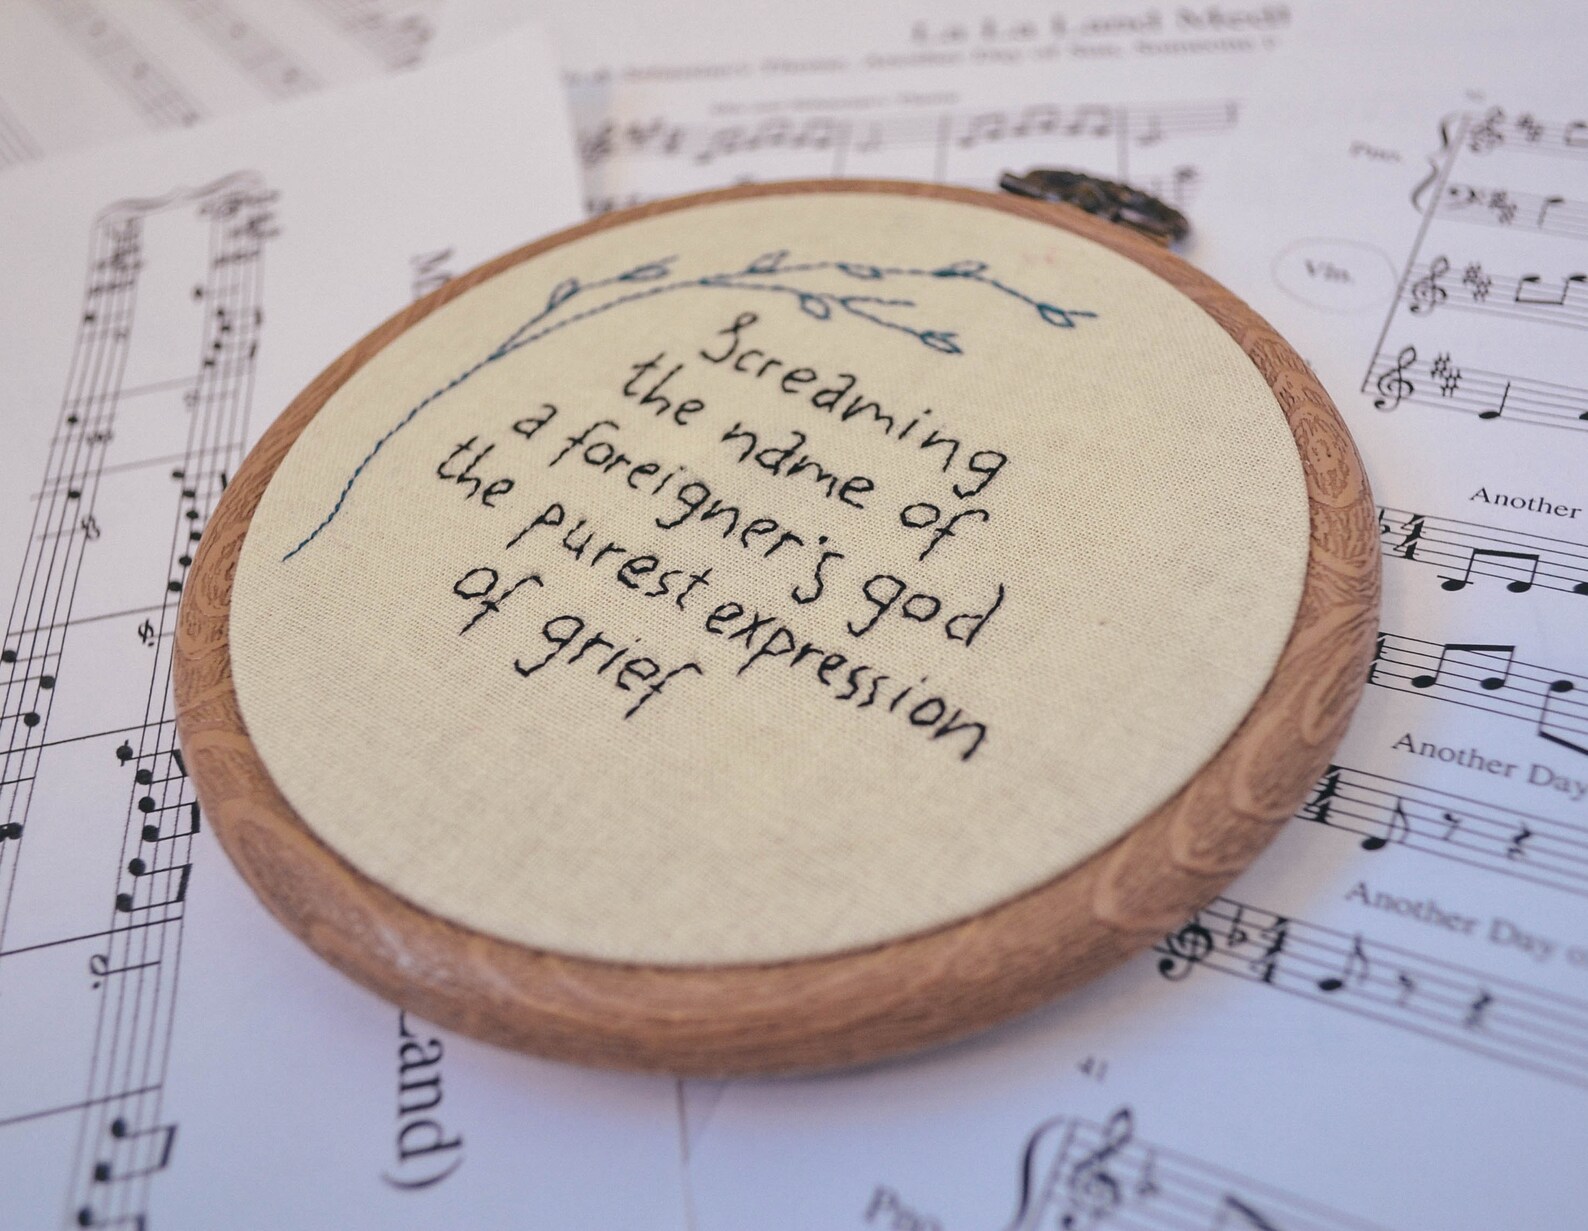 Screaming
the name of
a foreigner's god
the purest expression
of grief
La La Land Medl
Pno.
Vln.
Another
Another Day
Another Day o
41
Pno
Land)